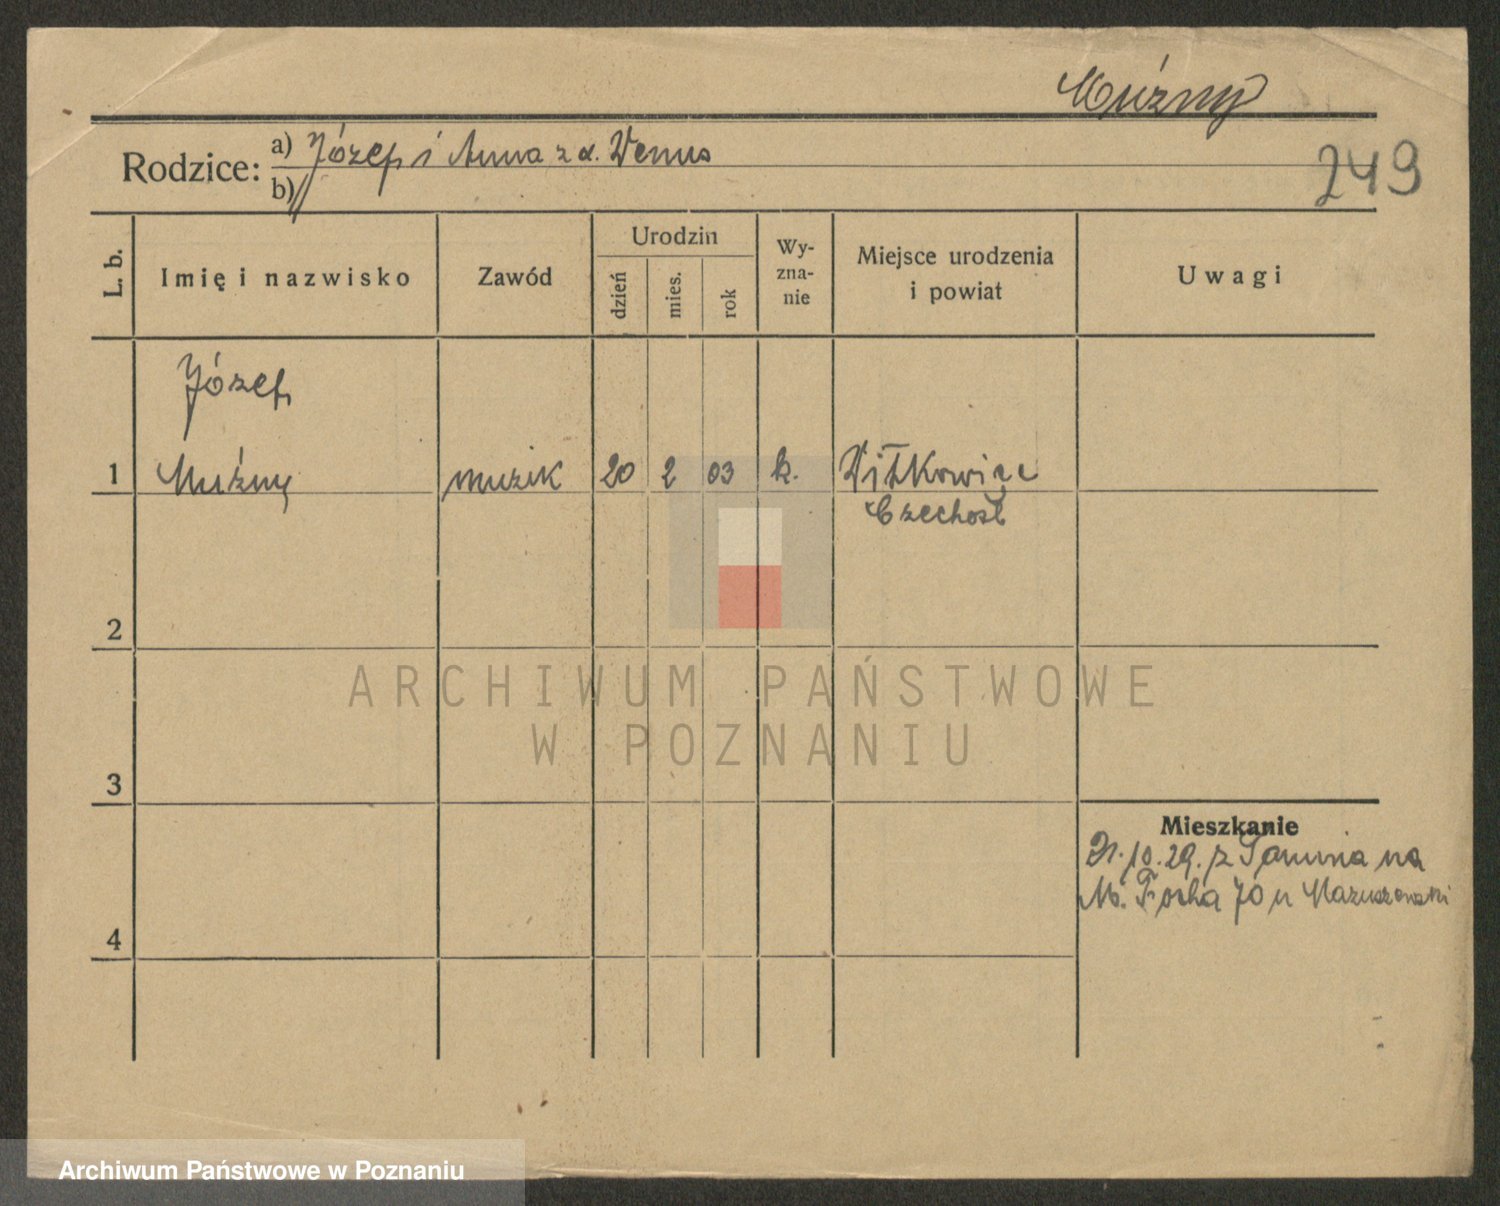 Múzny
Rodzice: a) Józef i Anna z d. Venus
b) //
249
L. b.
Imię i nazwisko
Zawód
Urodzin
dzień
mies.
rok
Wy-
zna-
nie
Miejsce urodzenia
i powiat
Uwagi
Józef
1 Muźny muzik 20 2 03 k. Vitkowice
Czechosł
2
3
4
ARCHIWUM PAŃSTWOWE
W POZNANIU
Mieszkanie
10.29. z na
M. Focha 70 u
Archiwum Państwowe w Poznaniu